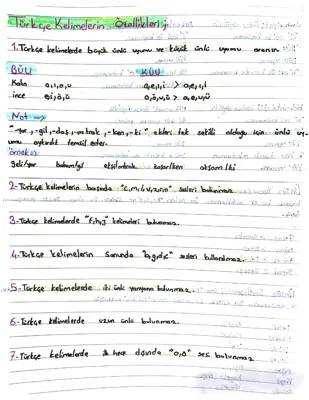 Türkçe Kelimelerin Özellikleri;
1. Türkçe kelimelerde büyük ünlü uyumu ve küçük ünlü uyumu aranır.
BÜU KÜU
Kalın a,ı,o,u a,e,ı,i > a,e,ı,i
ince e,i,ö,ü o,ö,u,ü > a,e,u,ü
Not →
"-yor, -gil, -daş, -mtrak, -ken, -ki" ekleri tek şekilli olduğu için ünlü uy-
umu aykırılık temsil eder.
örnek:
geliyor babamgil ekşimtrak koşarken akşamki
2- Türkçe kelimelerin başında "c,m,l,v,z,r,n" sesleri bulunmaz.
3- Türkçe kelimelerde "f,h,j" kelimeleri bulunmaz.
4- Türkçe kelimelerin sonunda "b,g,d,c" sesleri kullanılmaz.
5- Türkçe kelimelerde iki ünlü yanyana bulunmaz.
6- Türkçe kelimelerde uzun ünlü bulunmaz.
7- Türkçe kelimelerde ilk hece dışında "o,ö" sesi bulunmaz